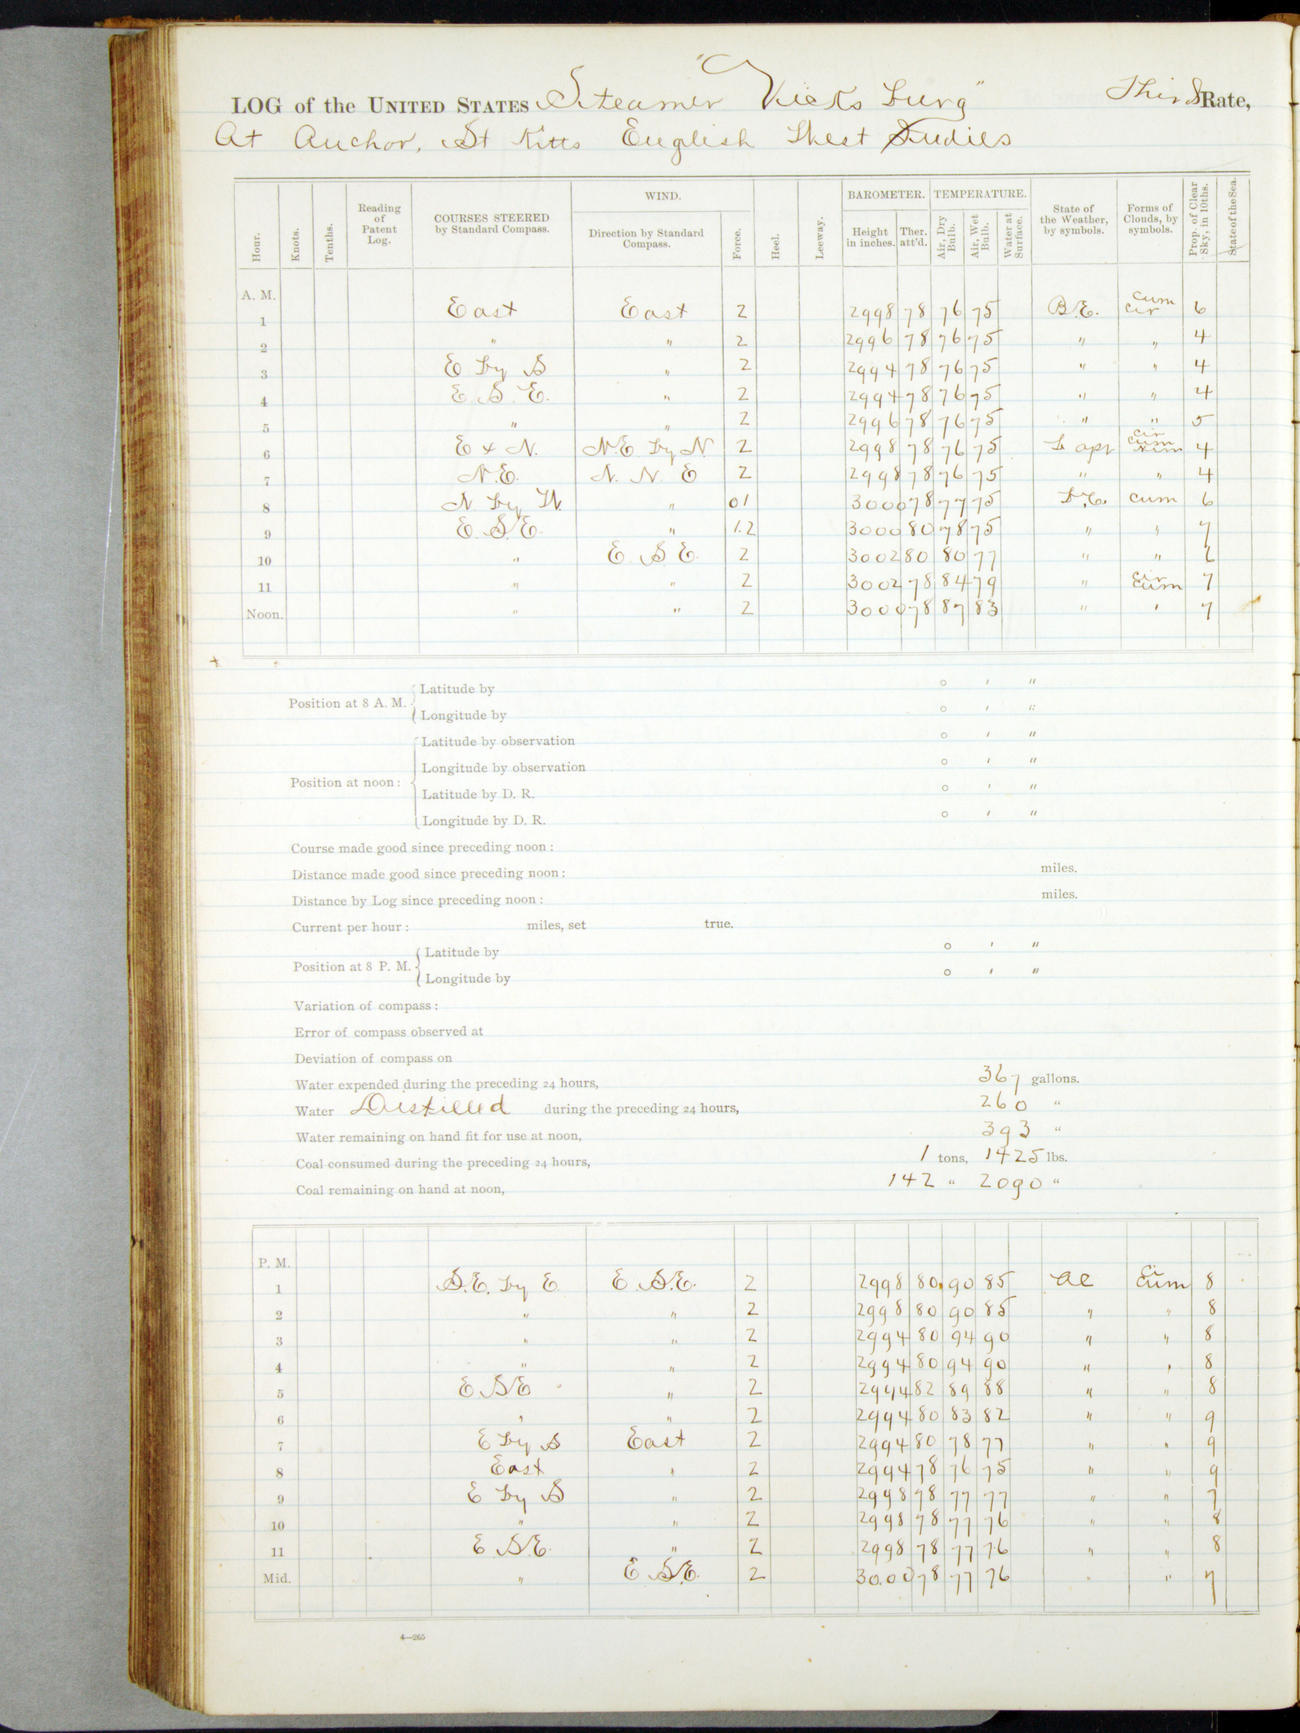 LOG of the UNITED STATES Steamer "Vicksburg" Third Rate,
At Anchor, St Kitts English West Indies
Hour. Knots. Tenths. Reading of Patent Log. COURSES STEERED by Standard Compass. WIND. Direction by Standard Compass. Force. Heel. Leeway. BAROMETER. Height in inches. Ther. att'd. TEMPERATURE. Air, Dry Bulb. Air, Wet Bulb. Water at Surface. State of the Weather, by symbols. Forms of Clouds, by symbols. Prop. of Clear Sky, in 10ths. State of the Sea.
A. M.
1 East East 2 2998 78 76 75 B.C. cum cir 6
2 " " 2 2996 78 76 75 " " 4
3 E by S " 2 2994 78 76 75 " " 4
4 E. S. E. " 2 2994 78 76 75 " " 4
5 " " 2 2996 78 76 75 " " 5
6 E x N. N.E by N 2 2998 78 76 75 cir cum nim 4
7 N.E. N. N. E 2 2998 78 76 75 " " 4
8 N by W. " 01 3000 78 77 75 b.c. cum 6
9 E. S.E. " 1.2 3000 80 78 75 " " 7
10 " E. S E. 2 3002 80 80 77 " " 6
11 " " 2 3002 78 84 79 " cir cum 7
Noon. " " 2 3000 78 87 83 " " 7
Position at 8 A. M. Latitude by ° ′ ″
Longitude by ° ′ ″
Position at noon: Latitude by observation ° ′ ″
Longitude by observation ° ′ ″
Latitude by D. R. ° ′ ″
Longitude by D. R. ° ′ ″
Course made good since preceding noon:
Distance made good since preceding noon: miles.
Distance by Log since preceding noon: miles.
Current per hour: miles, set true.
Position at 8 P. M. Latitude by ° ′ ″
Longitude by ° ′ ″
Variation of compass:
Error of compass observed at
Deviation of compass on
Water expended during the preceding 24 hours, 367 gallons.
Water Distilled during the preceding 24 hours, 260 "
Water remaining on hand fit for use at noon, 393 "
Coal consumed during the preceding 24 hours, 1 tons, 1425 lbs.
Coal remaining on hand at noon, 142 " 2090 "
P. M.
1 S.E. by E E S.E. 2 2998 80 90 85 ci cum 8
2 " " 2 2998 80 90 85 " " 8
3 " " 2 2994 80 94 90 " " 8
4 " " 2 2994 80 94 90 " " 8
5 E S E " 2 2994 82 89 88 " " 8
6 " " 2 2994 80 83 82 " " 9
7 E by S East 2 2994 80 78 77 " " 9
8 East " 2 2994 78 76 75 " " 9
9 E by S " 2 2998 78 77 77 " " 7
10 " " 2 2998 78 77 76 " " 8
11 E S.E. " 2 2998 78 77 76 " " 8
Mid. " E S.E. 2 30.00 78 77 76 " " 7
4—265